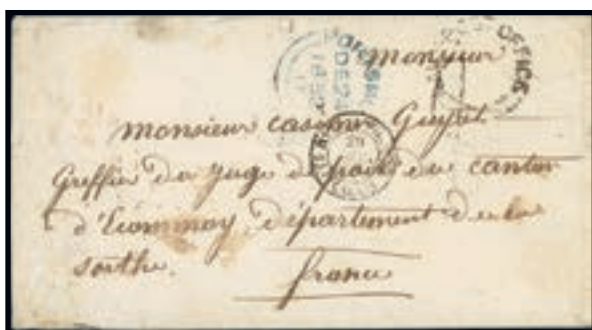 monsieur
monsieur casimir Guyet
Greffier du juge de paix du canton
d'Ecommoy, département de la
sarthe.
france
OFFICE
DE 24